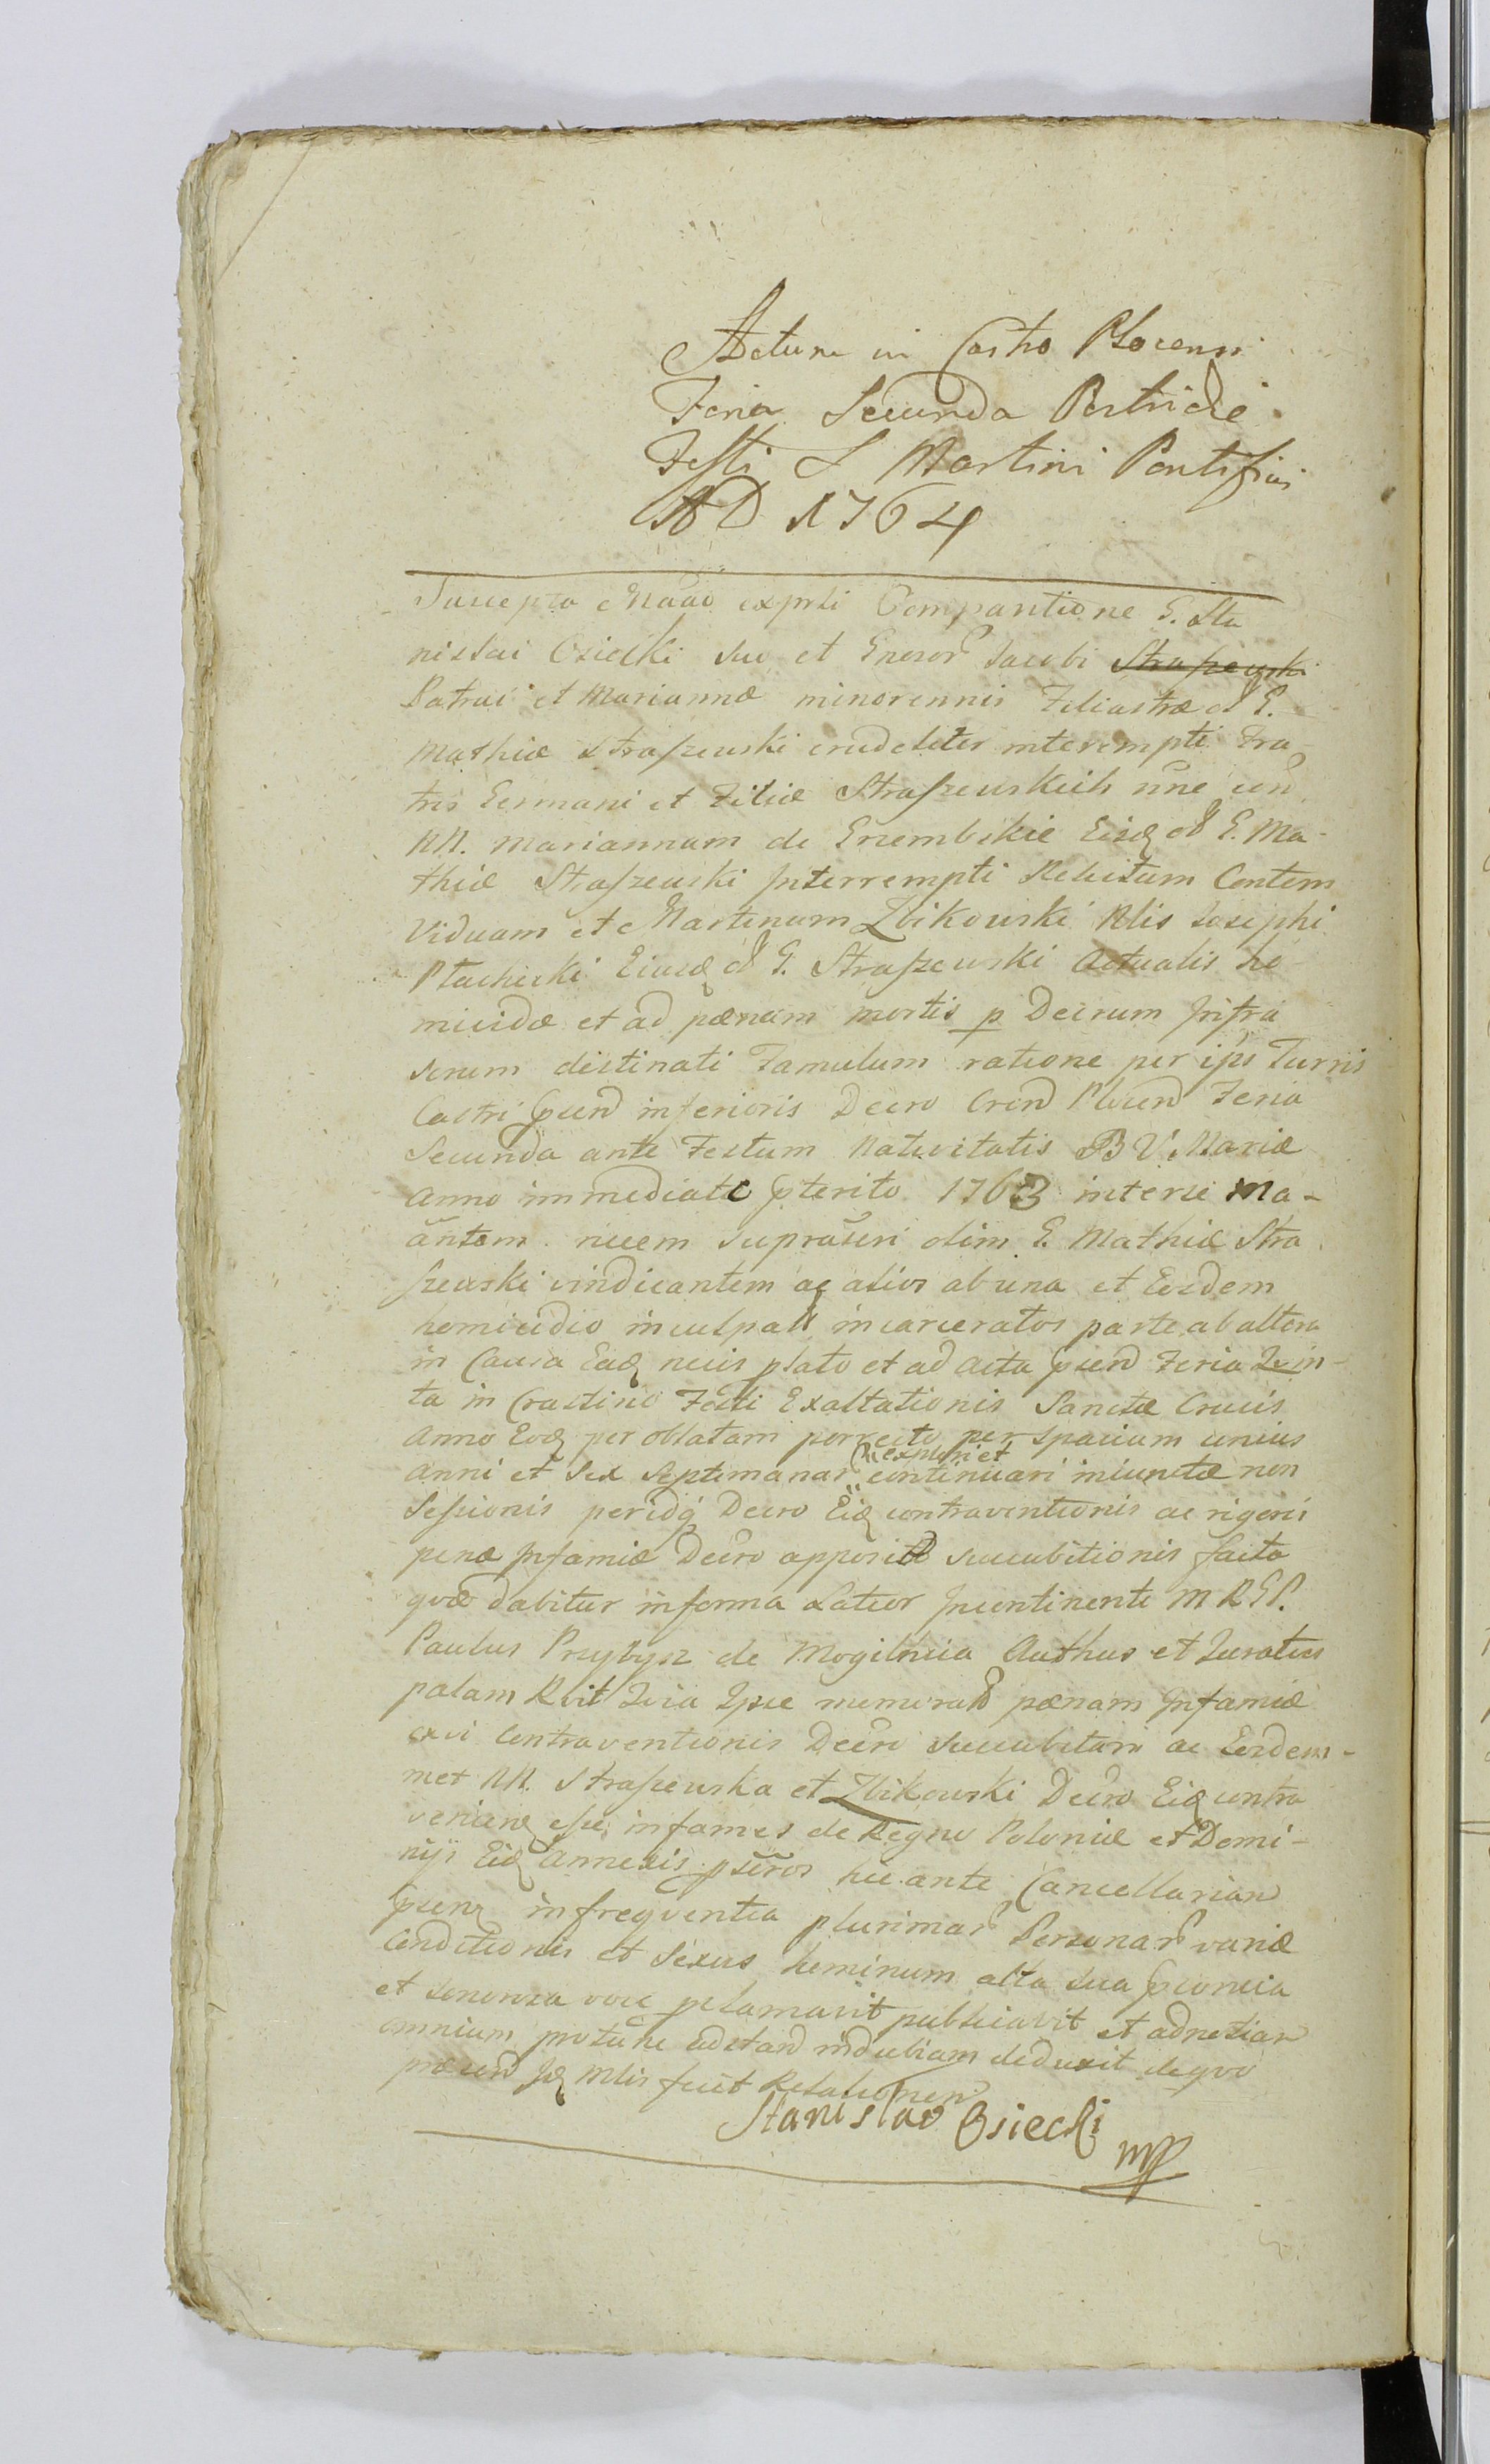 Actum in Castro Plocensi
Feria Secunda Postridie
Festi S Martini Pontificis
AD 1764
Suscepta Comparitione G. Sta
nislai Osiecki suo et Gnosor Jacobi Straszewski
Patrui et Mariannæ minorennis Filiastræ ol G.
Mathiæ Straszewski crudeliter interempti Fra
tris Germani et Filiæ Straszewskich nõe cen
NN. Mariannam de Grzembskie Eiusq ol G. Ma-
thiæ Straszewski Interrempti Relictam Contem
Viduam et Martinum Zbikowski Nlis Josephi
Ptachecki Eiusq ol G. Straszewski actualis ho
micidæ et ad pænam mortis p Decrum Infra
scrum destinati Famulum ratione per ips Turris
Castri psen inferioris Decro Cren Plocen Feria
Secunda ante Festum Nativitatis B V Mariæ
Anno immediate pterito 1763 interse Ma-
antem necem suprascri olim G. Mathiæ Stra
szewski vindicantem ac alios ab una et Eosdem
homicidio inculpatt incarceratos parte ab altera
in Causa Eaq necis plato et ad acta psen Feria Quin-
ta in Crastino Festi Exaltationis Sanctæ Crucis
Anno Eoq per oblatam porrecto per spacium unius
et
Anni et sex septimanar continuari iniunctæ non
Sessionis peridq Decro Eiq contraventionis ac rigori
penæ Infamiæ Decro apposit succubitionis facta
quæ dabitur in forma Latior Incontinenti M R G P.
Paulus Przybysz de Mogilnica Authus et Juratus
palam Rvit Quia Ipse memorat pænam Infamiæ
exvi Contraventionis Decri succubitam ac Eosdem-
met NN. Straszewska et Zbikowski Decro Eiq contra
venien esse infames de Regno Poloniæ et Domi-
nijs Eiq Annexis pscros hic ante Cancellarian
psen infreqventia plurimar Personar variæ
Conditionis et Sexus hominum alta sua pconica
et sonorosa voce pclamavit publicavit et ad notian
omnium protunc adstan indubiam deduxit de quo
præsen Jq Mlis fecit Relationem
Stanislao Osiecki
mp